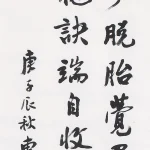 脱胎覺
訣端自收
庚子辰秋